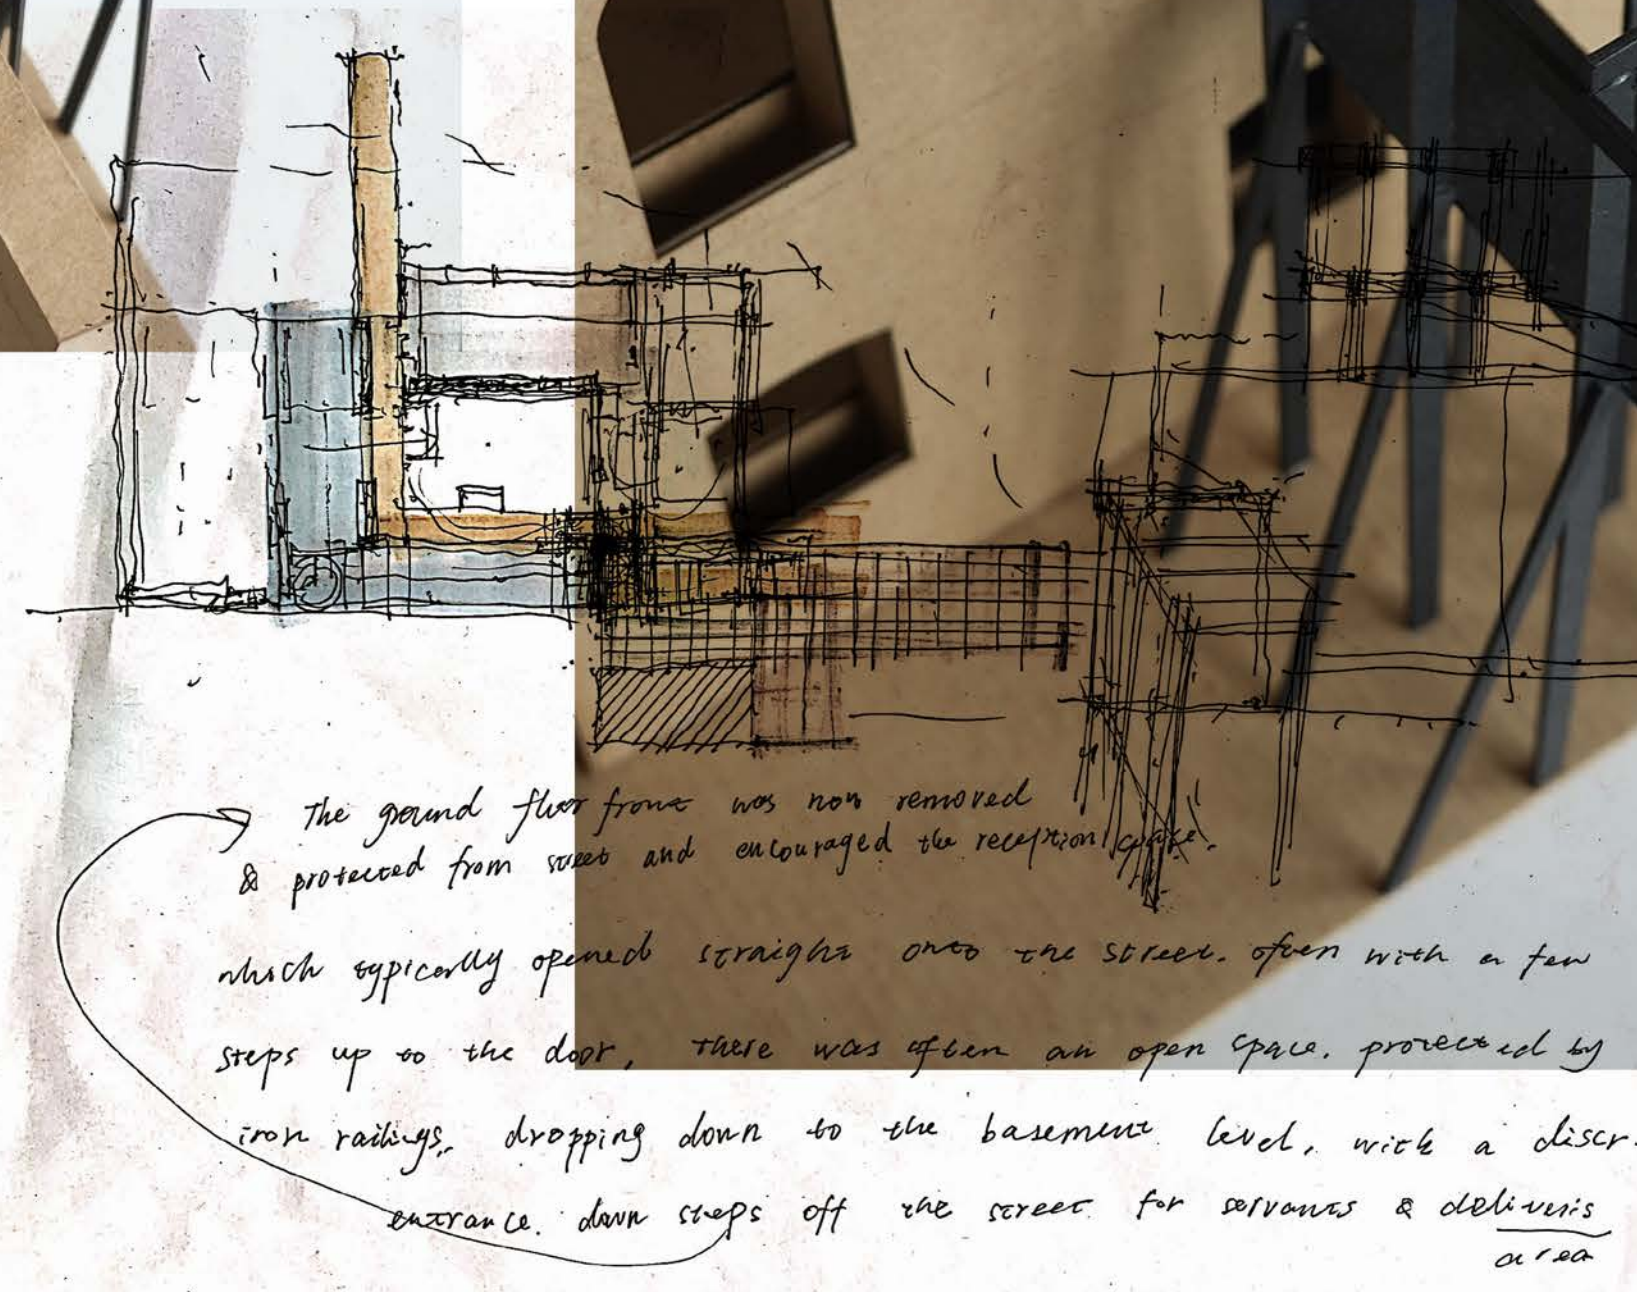 The ground floor front was now removed
& protected from street and encouraged the reception space.
which typically opened straight onto the street. often with a few
steps up to the door, there was often an open space. protected by
iron railings, dropping down to the basement level, with a discr.
entrance. down steps off the street for servants & deliveris
area